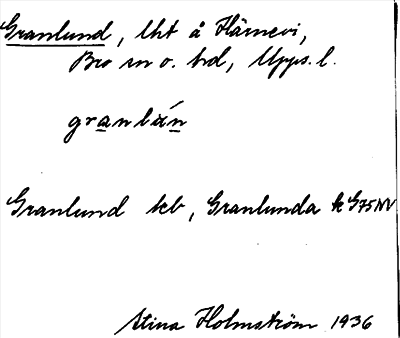 Granlund, lht å Härnevi,
Bro sn o. hd, Upps. l.
granlún
Granlund tcb, Granlunda k G75NV
Stina Holmström 1936